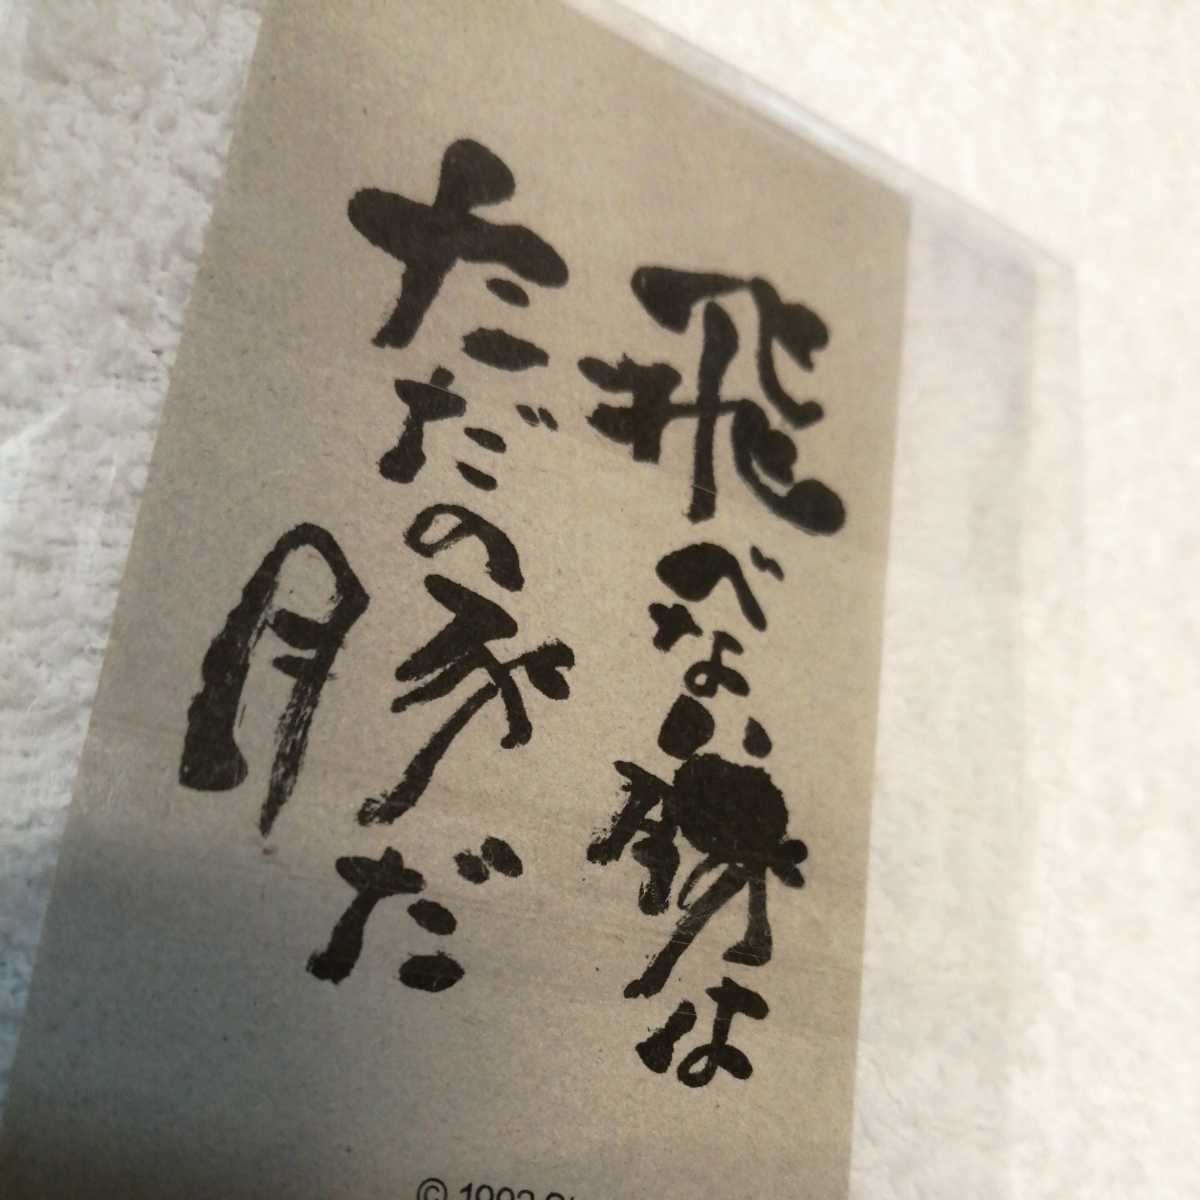 飛べない豚は
ただの豚だ
© 1992